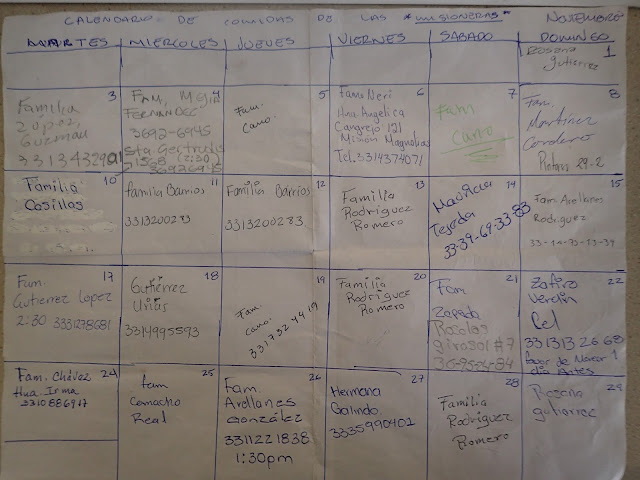 CALENDARIO DE COMIDAS DE LAS "MISIONERAS" NOVIEMBRE
MARTES MIERCOLES JUEVES VIERNES SABADO DOMINGO
1
Rosana
gutierrez
3
Familia
Lopez
Guzman
3313432901
4
Fam. Mejia
FERNANDEZ
3692-6945
Sta Gertrudis
5
Fam.
Cano.
6
Fam Neri
Hna Angelica
Cangrejo 121
Mision Magnolias
Tel. 3314374071
7
Fam
Cano
8
Fam.
Martinez
Cordero
Retorno 29-2
10
Familia
Casillas
11
Familia Barrios
3313200283
12
Familia Barrios
3313200283
13
Familia
Rodriguez
Romero
14
Mauricio
Tejeda
33-39-69-33-83
15
Fam Arellanes
Rodriguez
17
Fam.
Gutierrez Lopez
2:30 3331278681
18
Gutiérrez
Urias
3314995593
19
Fam.
Cano.
3317324419
20
Familia
Rodriguez
Romero
21
Fam
Zepeda
Rosales
girosol #7
22
Zafiro
Verdin
Cel
331313 26 68
dia Antes
24
Fam. Chávez
Hna. Irma
3310886917
25
fam
Camacho
Real
26
Fam.
Arellanes
González
3311221838
1:30pm
27
Hermana
Galindo.
3335990401
28
Familia
Rodriguez
Romero
29
Rosana
gutierrez